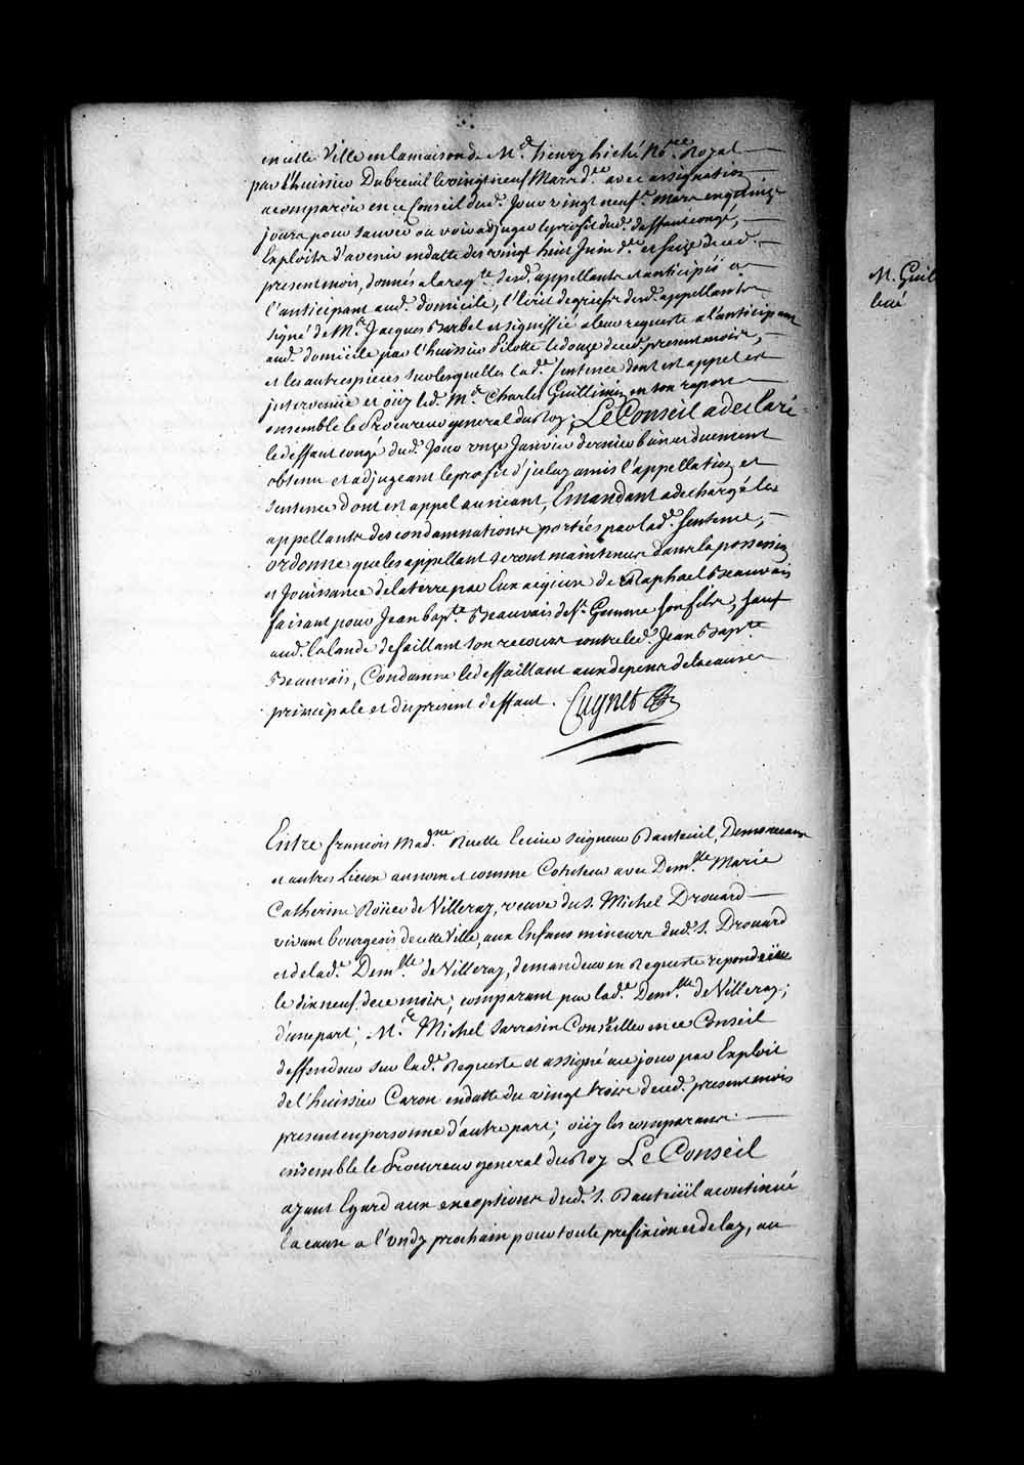 en cette Ville en la maison de M.e henry hiché No.re Royal
par l'huissier Dubreuil le vingt neuf Mars d.er avec assignation
a comparoir en ce Conseil dud. Jour vingt neuf.e mars en quinze
jours pour sauver ou voir adjuger le profit dud. deffaut congé,
Exploits d'avenir en datte des vingt huit Juin d.er et seize de ce
present mois, donnés a la req.te desd. appellants et anticipés a
l'anticipant aud. domicile, l'Ecrit de griefs desd. appellants
signé de M.e Jacques Barbel et signiffié a leur requeste a l'anticipant
aud. domicile par l'huissier Pilotte le douze dud. present mois,
et les autres pieces sur lesquelles lad.e Sentence dont est appel est
intervenüe et oüy led. M.e Charles Guillimin en son raport
ensemble le Procureur general du Roy; Le Conseil a declaré
le deffaut congé dud. Jour onze Janvier dernier bien et duement
obtenu et adjugeant le profit d'jceluy a mis l'appellation et
Sentence dont est appel au neant, Emandant a dechargé les
appellants des condamnations portées par lad.e Sentence,
ordonne que les appellant seront maintenus dans la possession
et Jouissance de la terre par Eux acquise de Raphael Beauvais
faisant pour Jean Bap.te Beauvais de S.te Gemme son fils, sauf
aud. lalande deffaillant son recours contre led. Jean Bap.te
Beauvais, Condamne led. deffaillant aux depens de la cause
principale et du present deffaut. Cugnet

Entre françois Mad.ne Ruette Ecuier Seigneur Dauteüil, Demonceaux
et autres Lieux au nom et comme Cotuteur avec Dem.lle Marie
Catherine Roüer de Villeray, veuve du S. Michel Drouard
vivant bourgeois de cette Ville, aux Enfans mineurs dud. S. Drouard
et de lad.e Dem.lle de Villeray, demandeur en Requeste repondüe
le dix neuf de ce mois, comparant par lad.e Dem.lle de Villeray;
d'une part; M.e Michel Sarrasin Conseiller en ce Conseil
deffendeur sur lad.e Requeste et assigné a ce jour par Exploit
de l'huissier Caron en datte du vingt trois dud. present mois
present en personne d'autre part; oüy les comparans
ensemble le Procureur general du Roy Le Conseil
ayant Egard aux exceptions dud. S. Dauteüil a continué
la cause a l'undy prochain pour toute prefixion et delay, au
M. Guil
levé